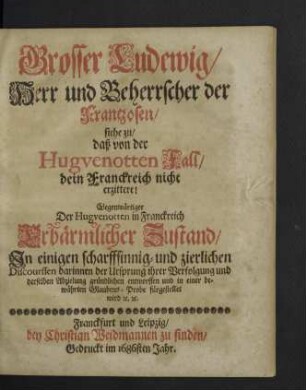 Grosser Ludewig/
Herr und Beherrscher der
Frantzosen/
siehe zu/
daß von der
Hugvenotten Fall/
dein Franckreich nicht
erzittere:
Gegenwärtiger
Der Hugvenotten in Franckreich
Erbärmlicher Zustand/
In einigen scharffsinnig- und zierlichen
Discourssen darinnen der Ursprung ihrer Verfolgung und
derselben Abziehlung gründlichen entworffen und in einer be-
währten Glaubens-Probe fürgestellet
wird ꝛc. ꝛc.
Franckfurt und Leipzig/
bey Christian Weidmannen zu finden/
Gedruckt im 1686sten Jahr.